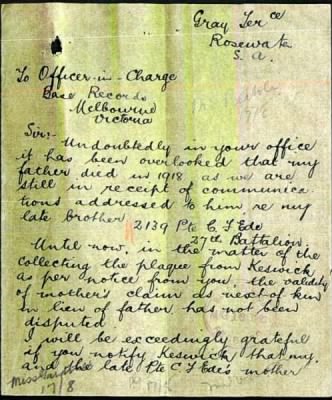 Gray Terce
Rosewater
S. A.
To Officer-in-Charge
Base Records
Melbourne
Victoria
Sir:-
Undoubtedly in your office
it has been overlooked that my
father died in 1918 as we are
still in receipt of communica
tions addressed to him re my
late brother
2139 Pte C. J. Ede
27th Battalion.
Until now, in the matter of the
collecting the plaque from Keswick
as per notice from you, the validity
of mother's claim as next of kin
in lieu of father has not been
disputed
I will be exceedingly grateful
if you notify Keswick that my
and the late Pte C J Ede's mother
17/8